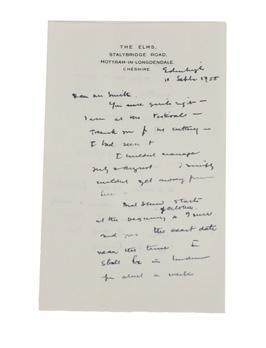 THE ELMS,
STALYBRIDGE ROAD,
MOTTRAM-IN-LONGDENDALE,
CHESHIRE
Edinburgh
10 Sept 1955
Dear Mr Smith.
You were quite right —
I was at the Festival —
Thank you for the cutting —
I had seen it
I couldn't manage
July & August I simply
couldn't get away from
here —
But I shall start
October
at the beginning &
and you the exact date
near the time I
shall be in London
for about a week